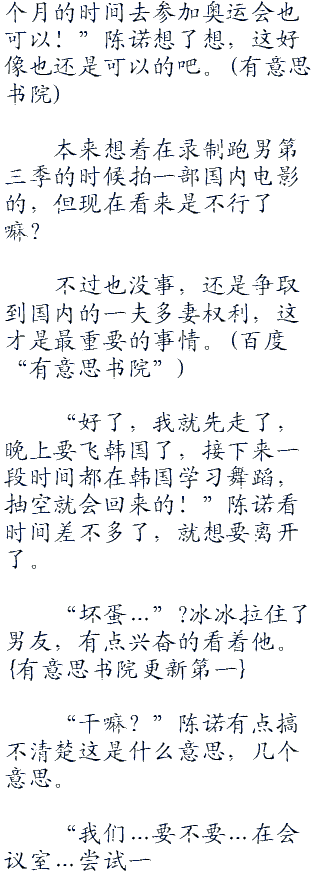 个月的时间去参加奥运会也
可以！”陈诺想了想，这好
像也还是可以的吧。(有意思
书院)
本来想着在录制跑男第
三季的时候拍一部国内电影
的，但现在看来是不行了
嘛?
不过也没事，还是争取
到国内的一夫多妻权利，这
才是最重要的事情。(百度
“有意思书院”)
“好了，我就先走了，
晚上要飞韩国了，接下来一
段时间都在韩国学习舞蹈，
抽空就会回来的！”陈诺看
时间差不多了，就想要离开
了。
“坏蛋…”?冰冰拉住了
男友，有点兴奋的看着他。
{有意思书院更新第一}
“干嘛？”陈诺有点搞
不清楚这是什么意思，几个
意思。
“我们…要不要…在会
议室…尝试一